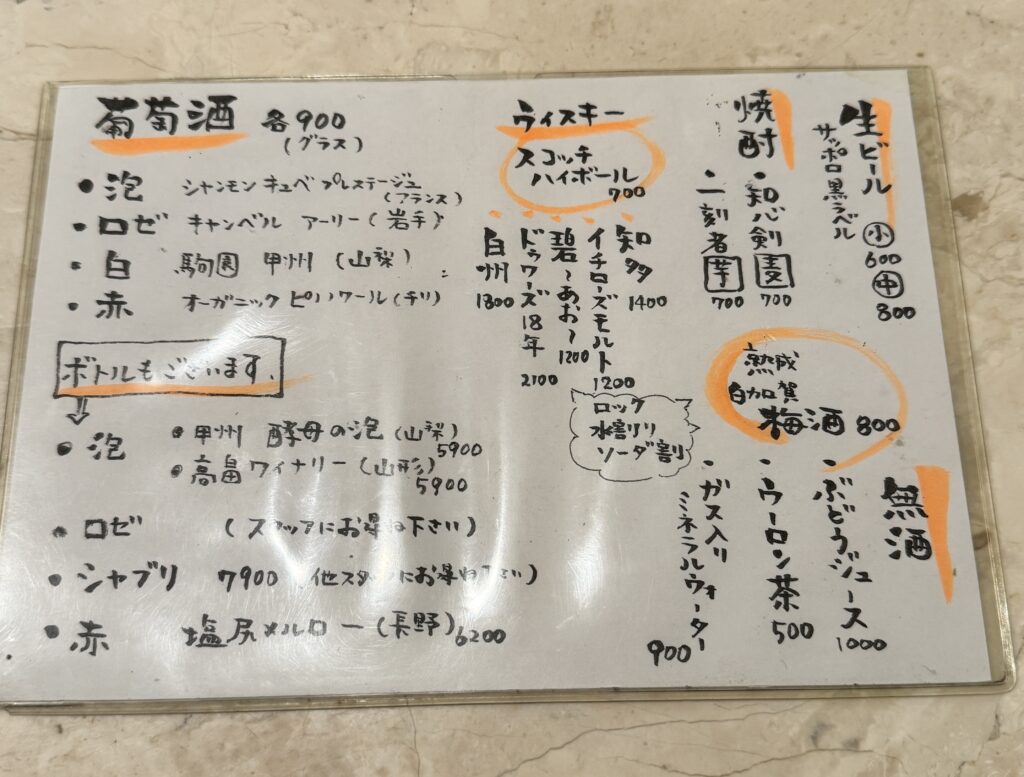 葡萄酒 各900
(グラス)
・泡 シャンモン キュベ プレステージュ
(フランス)
・ロゼ キャンベル アーリー(岩手)
・白 駒園 甲州 (山梨)
・赤 オーガニック ピノノワール(チリ)
ボトルもございます.
・泡 ・甲州 酵母の泡(山梨)
5900
・高畠ワイナリー(山形)
5900
・ロゼ (スタッフにお尋ね下さい)
・シャブリ 7900 (他スタッフにお尋ね下さい)
・赤 塩尻メルロー(長野)6200
ウィスキー
スコッチ
ハイボール
700
知多
1400
イチローズモルト
1200
碧〜あお〜
1200
ドゥワーズ18年
2100
白州
1300
ロック
水割り
ソーダ割
焼酎
・知心剣 麦
700
・一刻者 芋
700
生ビール
サッポロ黒ラベル
小
600
中
800
熟成
白加賀
梅酒 800
無酒
・ぶどうジュース
1000
・ウーロン茶
500
・ガス入り
ミネラルウォーター
900